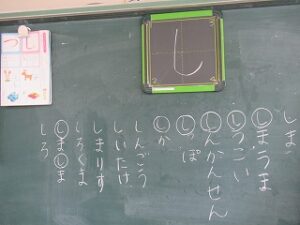 し
つ
し
しま
しまうま
しつこい
しんかんせん
しっぽ
しか
しんごう
しいたけ
しまりす
しろくま
しましま
しろ